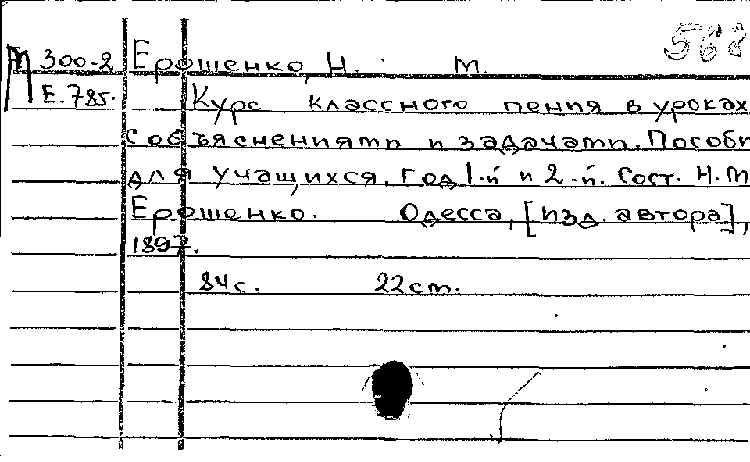 568
М 300-2 Ерошенко, Н. М.
Е.785. Курс классного пения в уроках
с объяснениями и задачами. Пособи
для учащихся. Год 1-й и 2-й. Сост. Н. М
Ерошенко. Одесса, [изд. автора],
1897.
84с. 22 см.